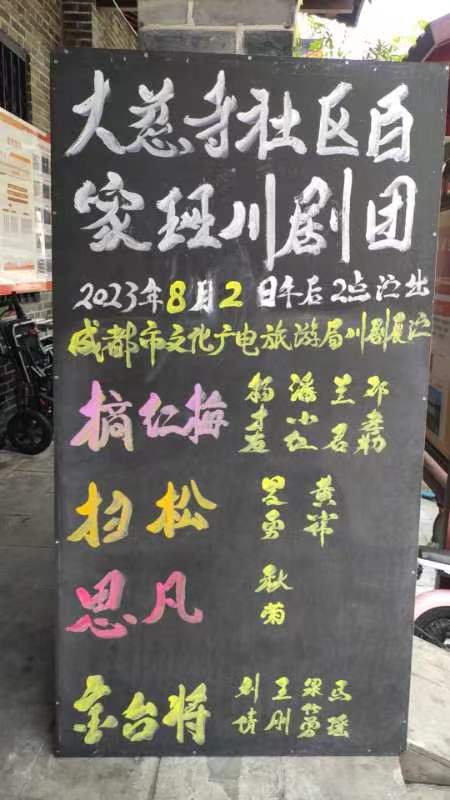 大慈寺社区百
家班川剧团
2023年8月2日午后2点演出
成都市文化广电旅游局川剧夏演
摘红梅 杨才左 潘小红 兰君 邓孝莉
扫松 吴勇 黄荣
思凡 秋菊
金台将 刘倩 王刚 梁竹勇 云瑶